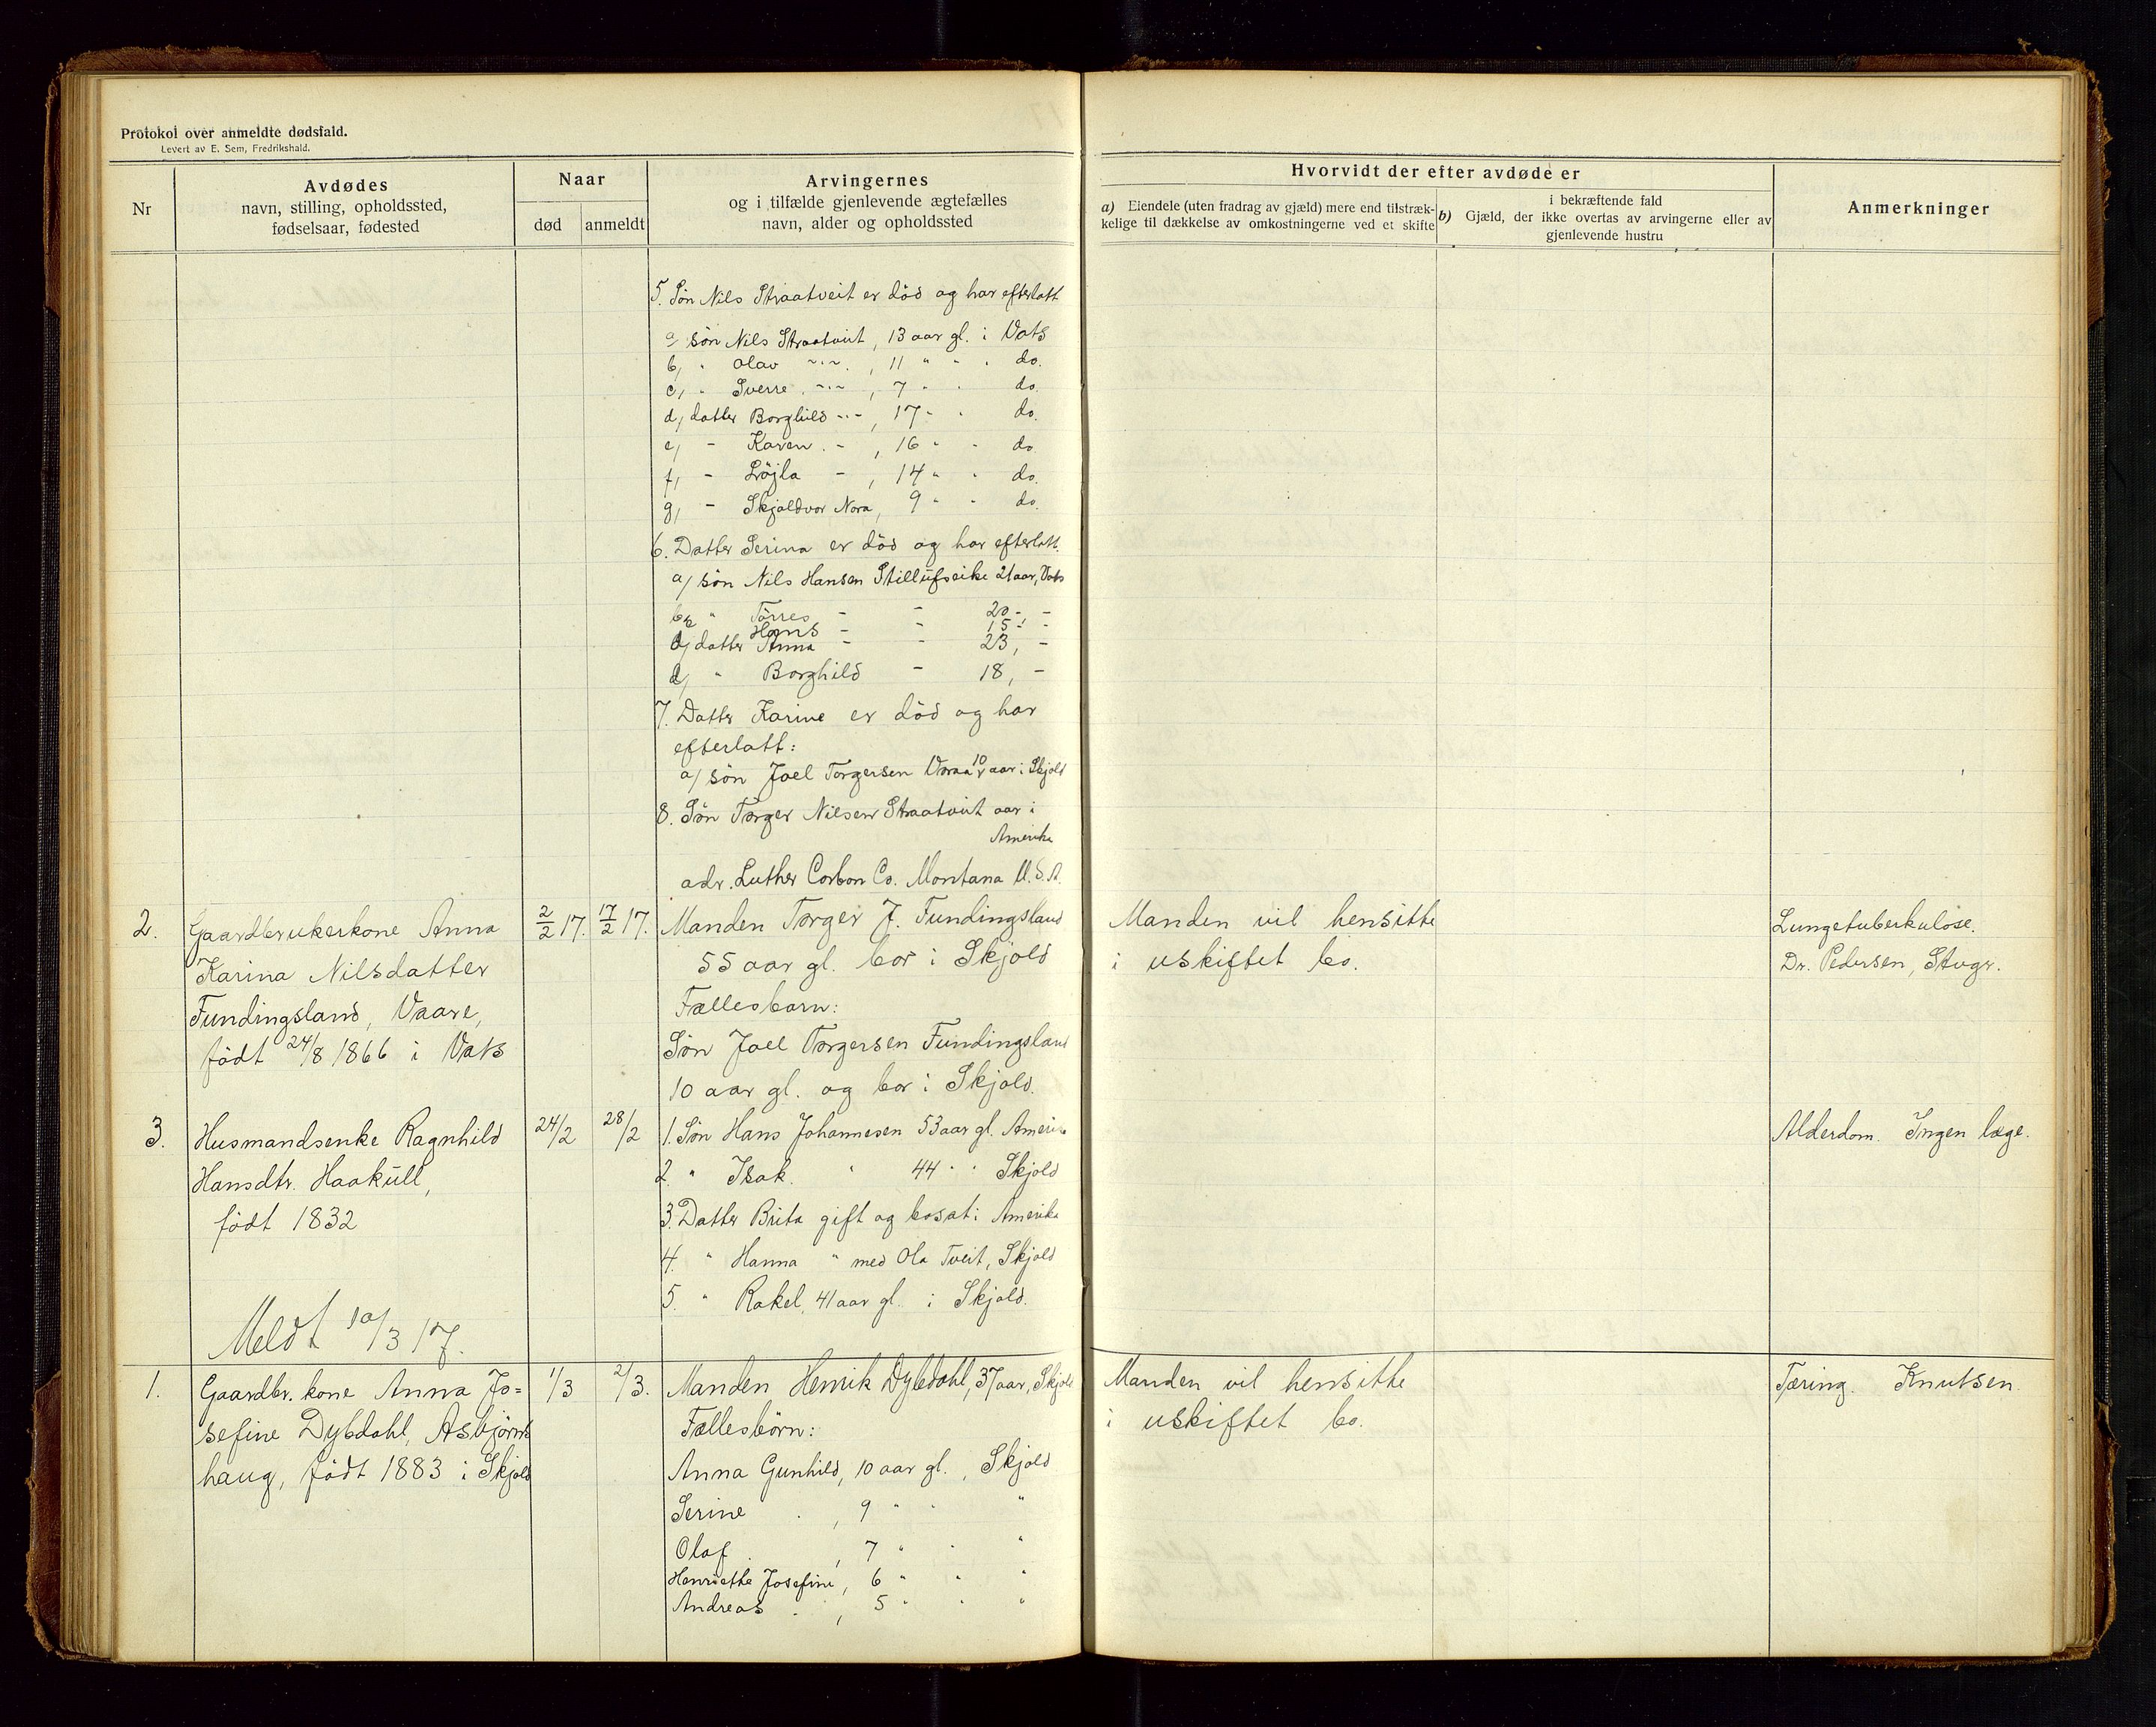 Protokol over anmeldte dødsfald.
Levert av E. Sem, Fredrikshald.
Nr
Avdødes
navn, stilling, opholdssted,
fødselsaar, fødested
Naar
død
anmeldt
Arvingernes
og i tilfælde gjenlevende ægtefælles
navn, alder og opholdssted
Hvorvidt der efter avdøde er
a) Eiendele (uten fradrag av gjæld) mere end tilstræk-
kelige til dækkelse av omkostningerne ved et skifte
i bekræftende fald
b) Gjæld, der ikke overtas av arvingerne eller av
gjenlevende hustru
Anmerkninger
5. Søn Nils Straatveit er död og har efterlatt
a/ søn Nils Straatveit, 13 aar gl. i Vats
b, " Olav -"-, 11 " " " do.
c, " Sverre -"-, 7 " " do.
d, datter Borghild -"-, 17 " " do.
e, - Karen -, 16 " " do.
f, - Löjla -, 14 " " do.
g, - Skjoldvor Nora, 9 " " do.
6. Datter Serina er död og har efterlatt
a/ søn Nils Hansen 21 aar, Vats
" Törres - - 20 - -
Hans - 15 - -
datter Anna - - 23, -
d, " Borghild - 18, -
7. Datter Karine er död og har
efterlatt:
a/ søn Joel Torgersen Vraa 10 aar i Skjold
8. Søn Torger Nilsen Straatveit aar i
Amerika
adr. Luther Corbon Co. Montana U.S.A.
2.
Gaardbrukerkone Anna
Karina Nilsdatter
Fundingsland, Vaare,
født 24/8 1866 i Vats
2/2 17.
17/2 17.
Manden Torger J. Fundingsland
55 aar gl. bor i Skjold
Fællesbarn:
Søn Joel Torgersen Fundingsland
10 aar gl. og bor i Skjold.
Manden vil hensitte
i uskiftet bo.
Lungetuberkulose.
Dr. Pedersen, Stvgr.
3.
Husmandsenke Ragnhild
Hansdtr. Haakull,
født 1832
24/2
28/2
1. Søn Hans Johannesen 53 aar gl. Amerika
2. " Isak. " 44 " " Skjold
3. Datter Brita gift og bosat i Amerika
4. " Hanna " med Ola Tveit, Skjold
5. " Rakel, 41 aar gl. i Skjold.
Alderdom. Ingen læge.
Meldt 10/3 17.
1.
Gaardbr. kone Anna Jo=
sefine Dybdahl, Asbjørns
haug, født 1883 i Skjold
1/3
2/3.
Manden Henrik Dybdahl, 37 aar, Skjold
Fællesbörn:
Anna Gunhild, 10 aar gl., Skjold
Serine ", 9 " " "
Olaf ", 7 " " "
Henriette Josefine, 6 " " "
Andreas ", 5 " " "
Manden vil hensitte
i uskiftet bo.
Tæring. Knutsen.